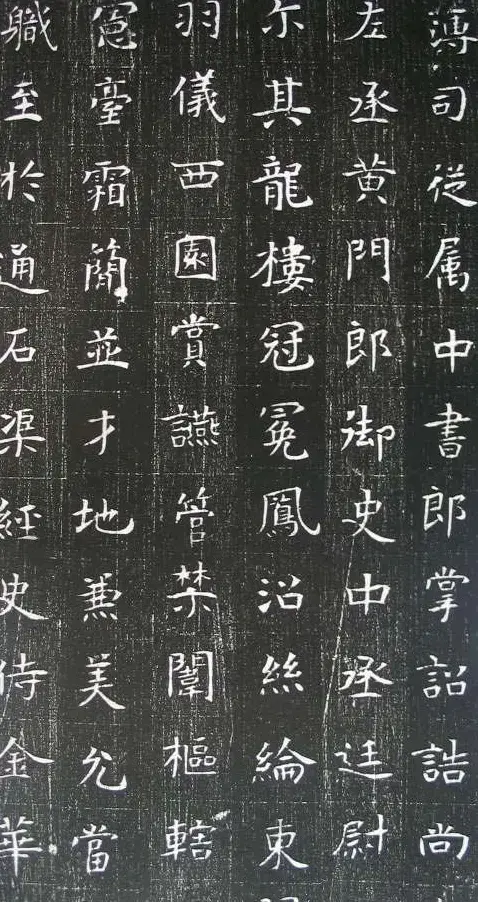 薄司從属中書郎掌詔誥尚
左丞黄門郎御史中丞廷尉
尓其龍樓冠冕鳳沼絲綸東
羽儀西園賞讌管禁闈樞轄
憲臺霜簡並才地兼美允當
職至於通石渠經史侍金華